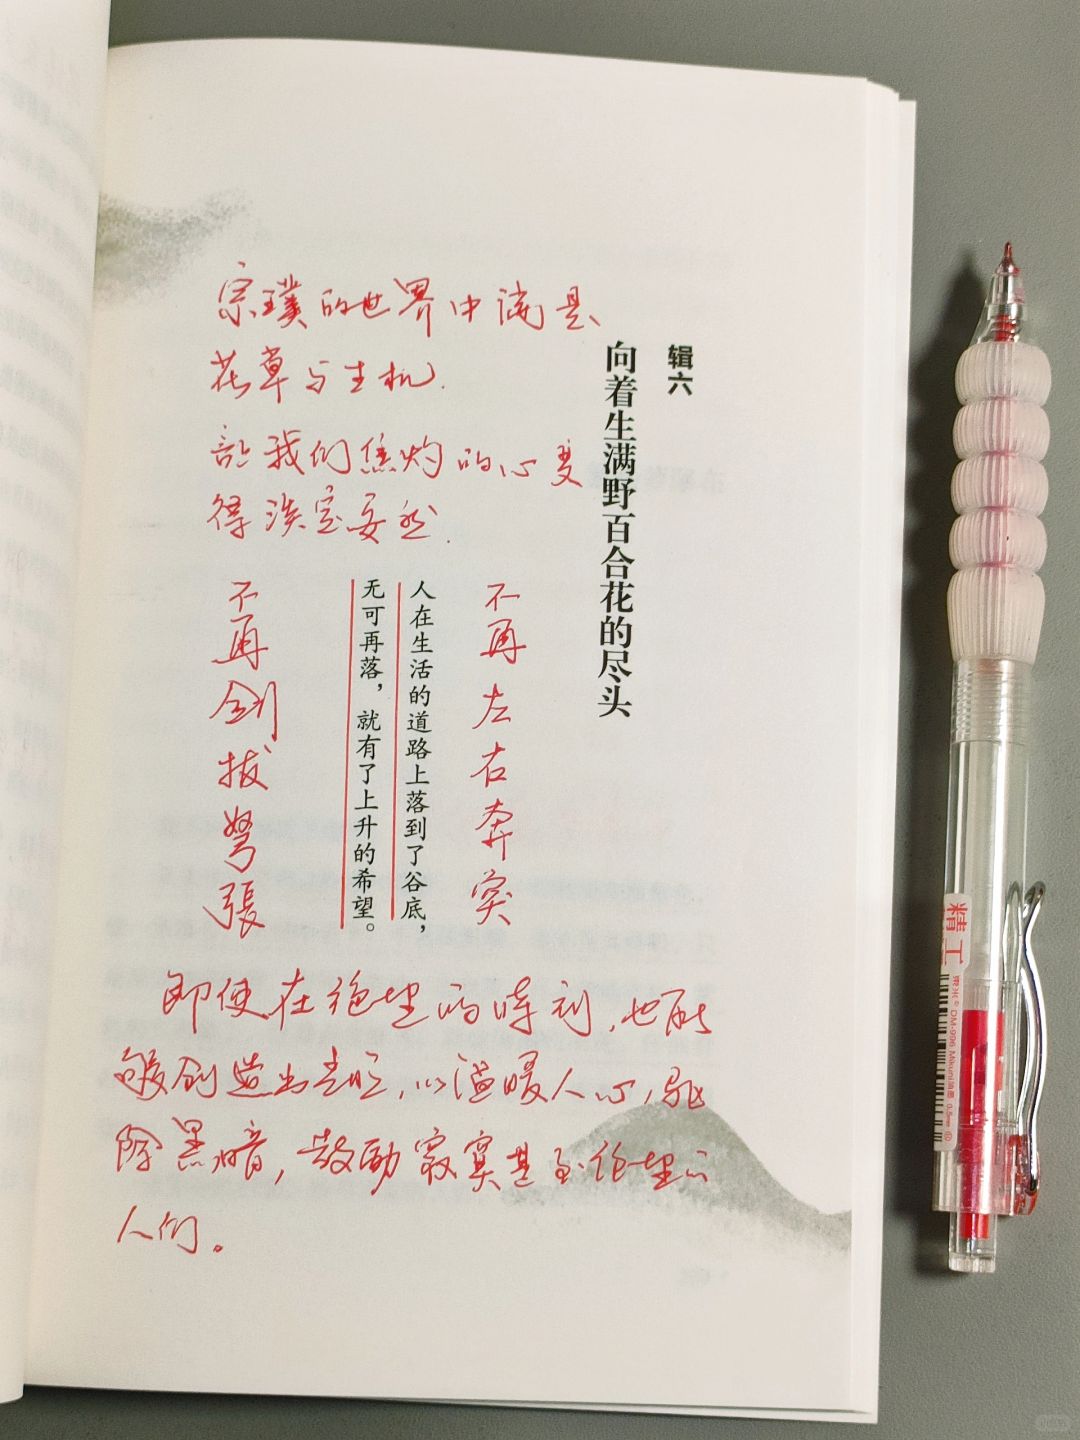 宗璞的世界中满是
花草与生机.
让我们焦灼的心变
得淡定安然.
辑六
向着生满野百合花的尽头
不再左右奔突
人在生活的道路上落到了谷底，
无可再落，就有了上升的希望。
不再剑拔弩張
即使在绝望的时刻，也能
够创造出光亮，以温暖人心，驱
除黑暗，鼓励寂寞甚至绝望的
人们。
精工